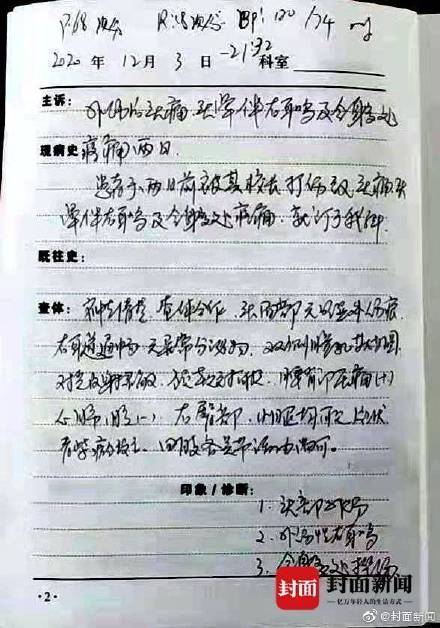 P:68次/分 R:18次/分 BP:120/74
2020年12月3日 -21:32 科室
主诉: 外伤后头痛 头晕伴右耳鸣及全身多处
现病史 疼痛两日
患者于两日前被其校长打伤致头痛头
晕伴右耳鸣及全身多处疼痛
既往史:
查体: 神志清楚 查体合作 头面部无明显外伤痕
右耳道通畅 无异常分泌物 双侧瞳孔等大等圆
对光反射灵敏 压痛(+)
心肺腹(-) 右臀部 片状
四肢各关节活动尚可。
印象/诊断:
1. 头部外伤
2. 外伤性右耳鸣
3. 全身多处挫伤
·2·
封面 封面新闻
亿万年轻人的生活方式
@封面新闻